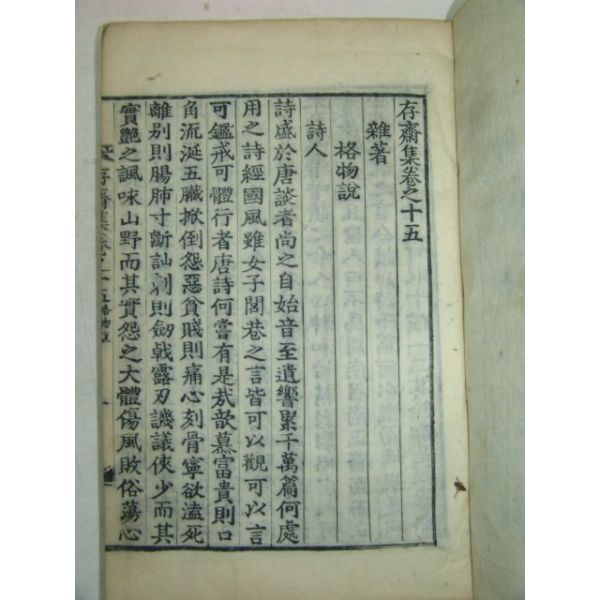 存齋集卷之十五
雜著
格物說
詩人
詩盛於唐談者尚之自始音至遺響累千萬篇何處
用之詩經國風雖女子閭巷之言皆可以觀可以言
可鑑戒可體行者唐詩何嘗有是哉歆慕富貴則口
角流涎五臟掀倒怨惡貧賤則痛心刻骨寧欲溘死
離別則腸肺寸斷訕刺則劒戟露刃譏議俠少而其
實艷之諷味山野而其實怨之大體傷風敗俗蕩心